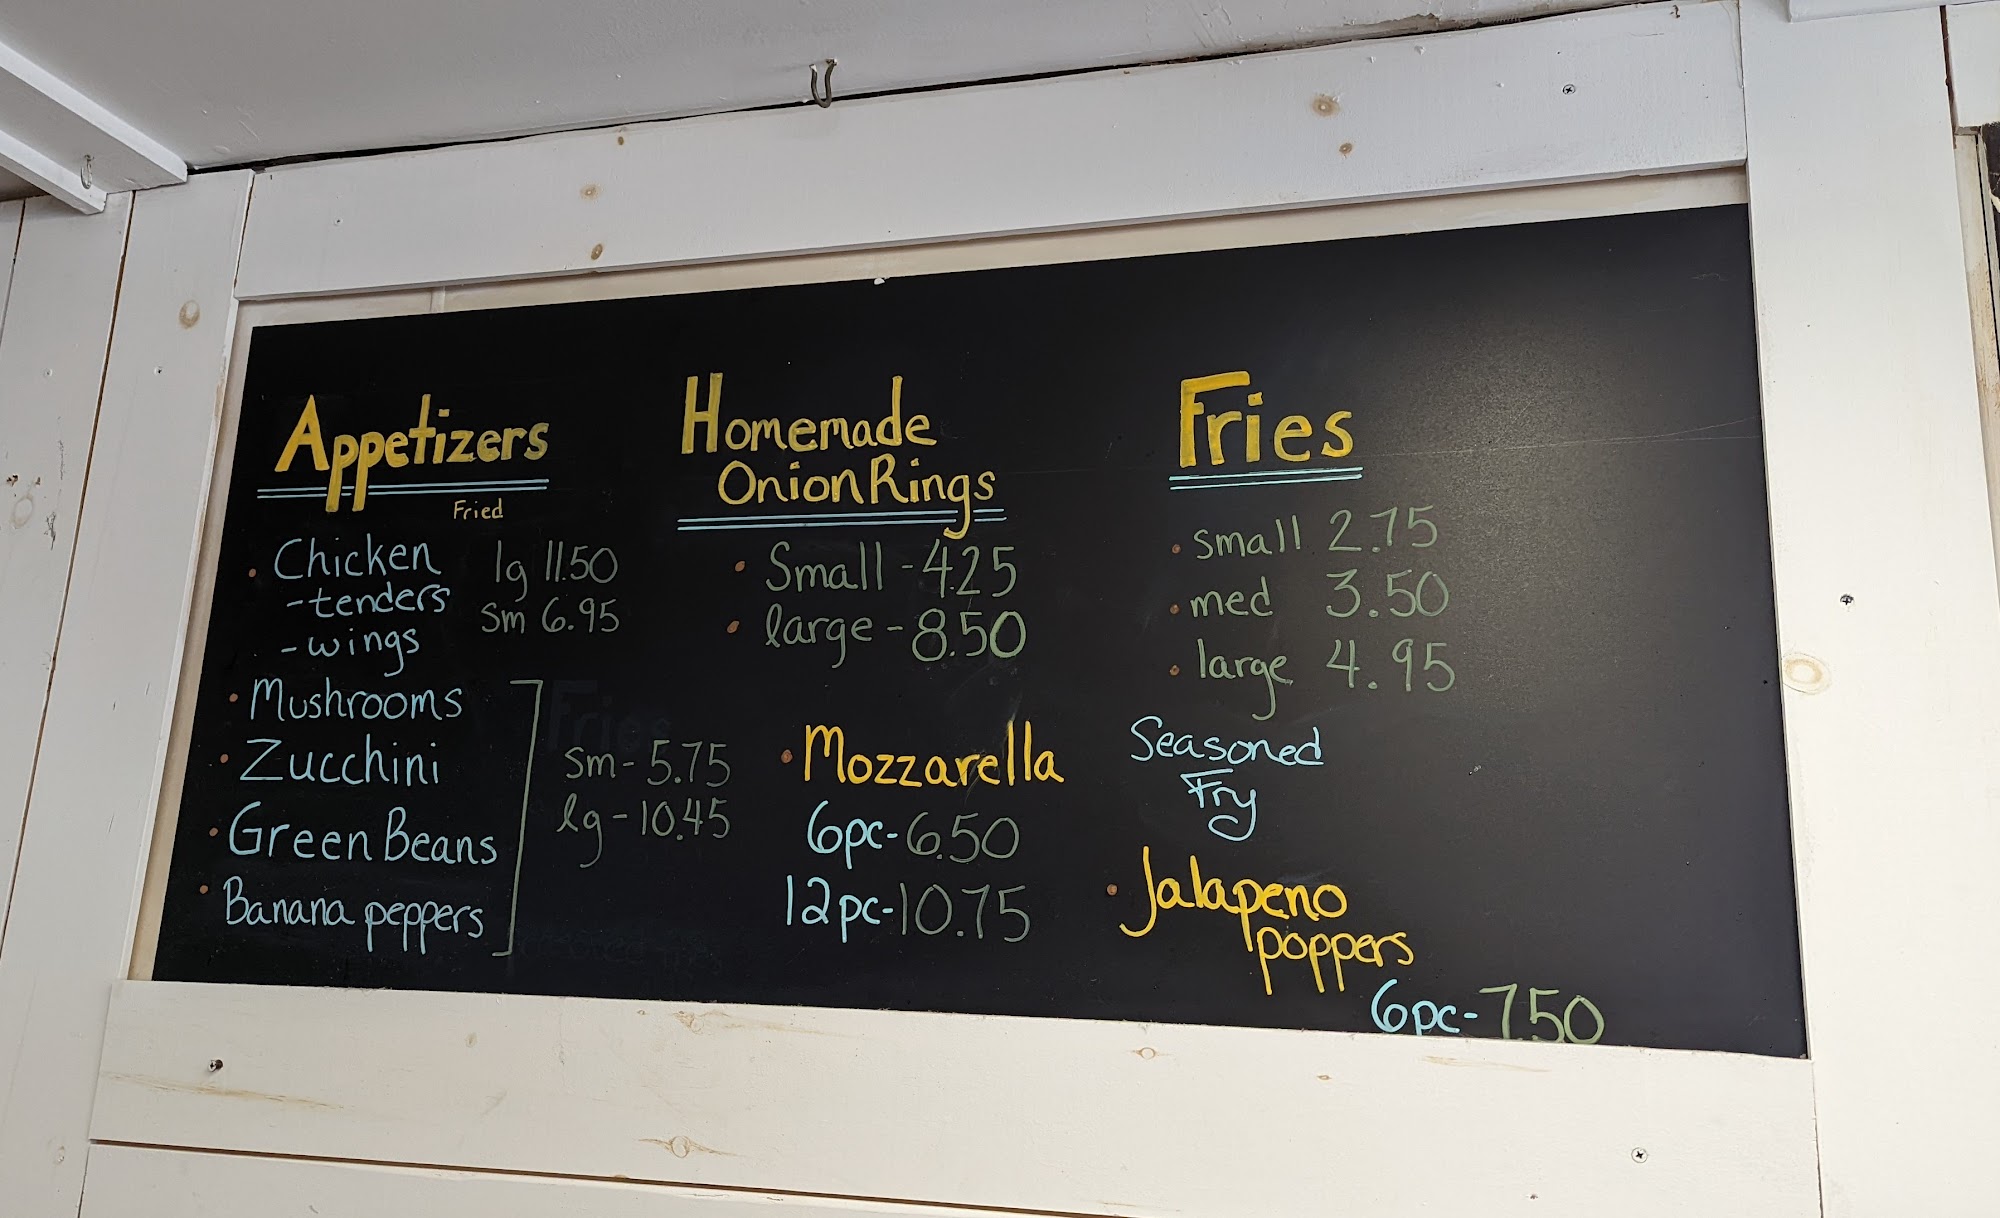 Appetizers
Fried
• Chicken
-tenders
-wings
lg 11.50
sm 6.95
• Mushrooms
• Zucchini
• Green Beans
• Banana peppers
sm- 5.75
lg- 10.45
Homemade
Onion Rings
• Small - 4.25
• large - 8.50
• Mozzarella
6pc- 6.50
12pc- 10.75
Fries
• small 2.75
• med 3.50
• large 4.95
Seasoned
Fry
• Jalapeno
poppers
6pc- 7.50